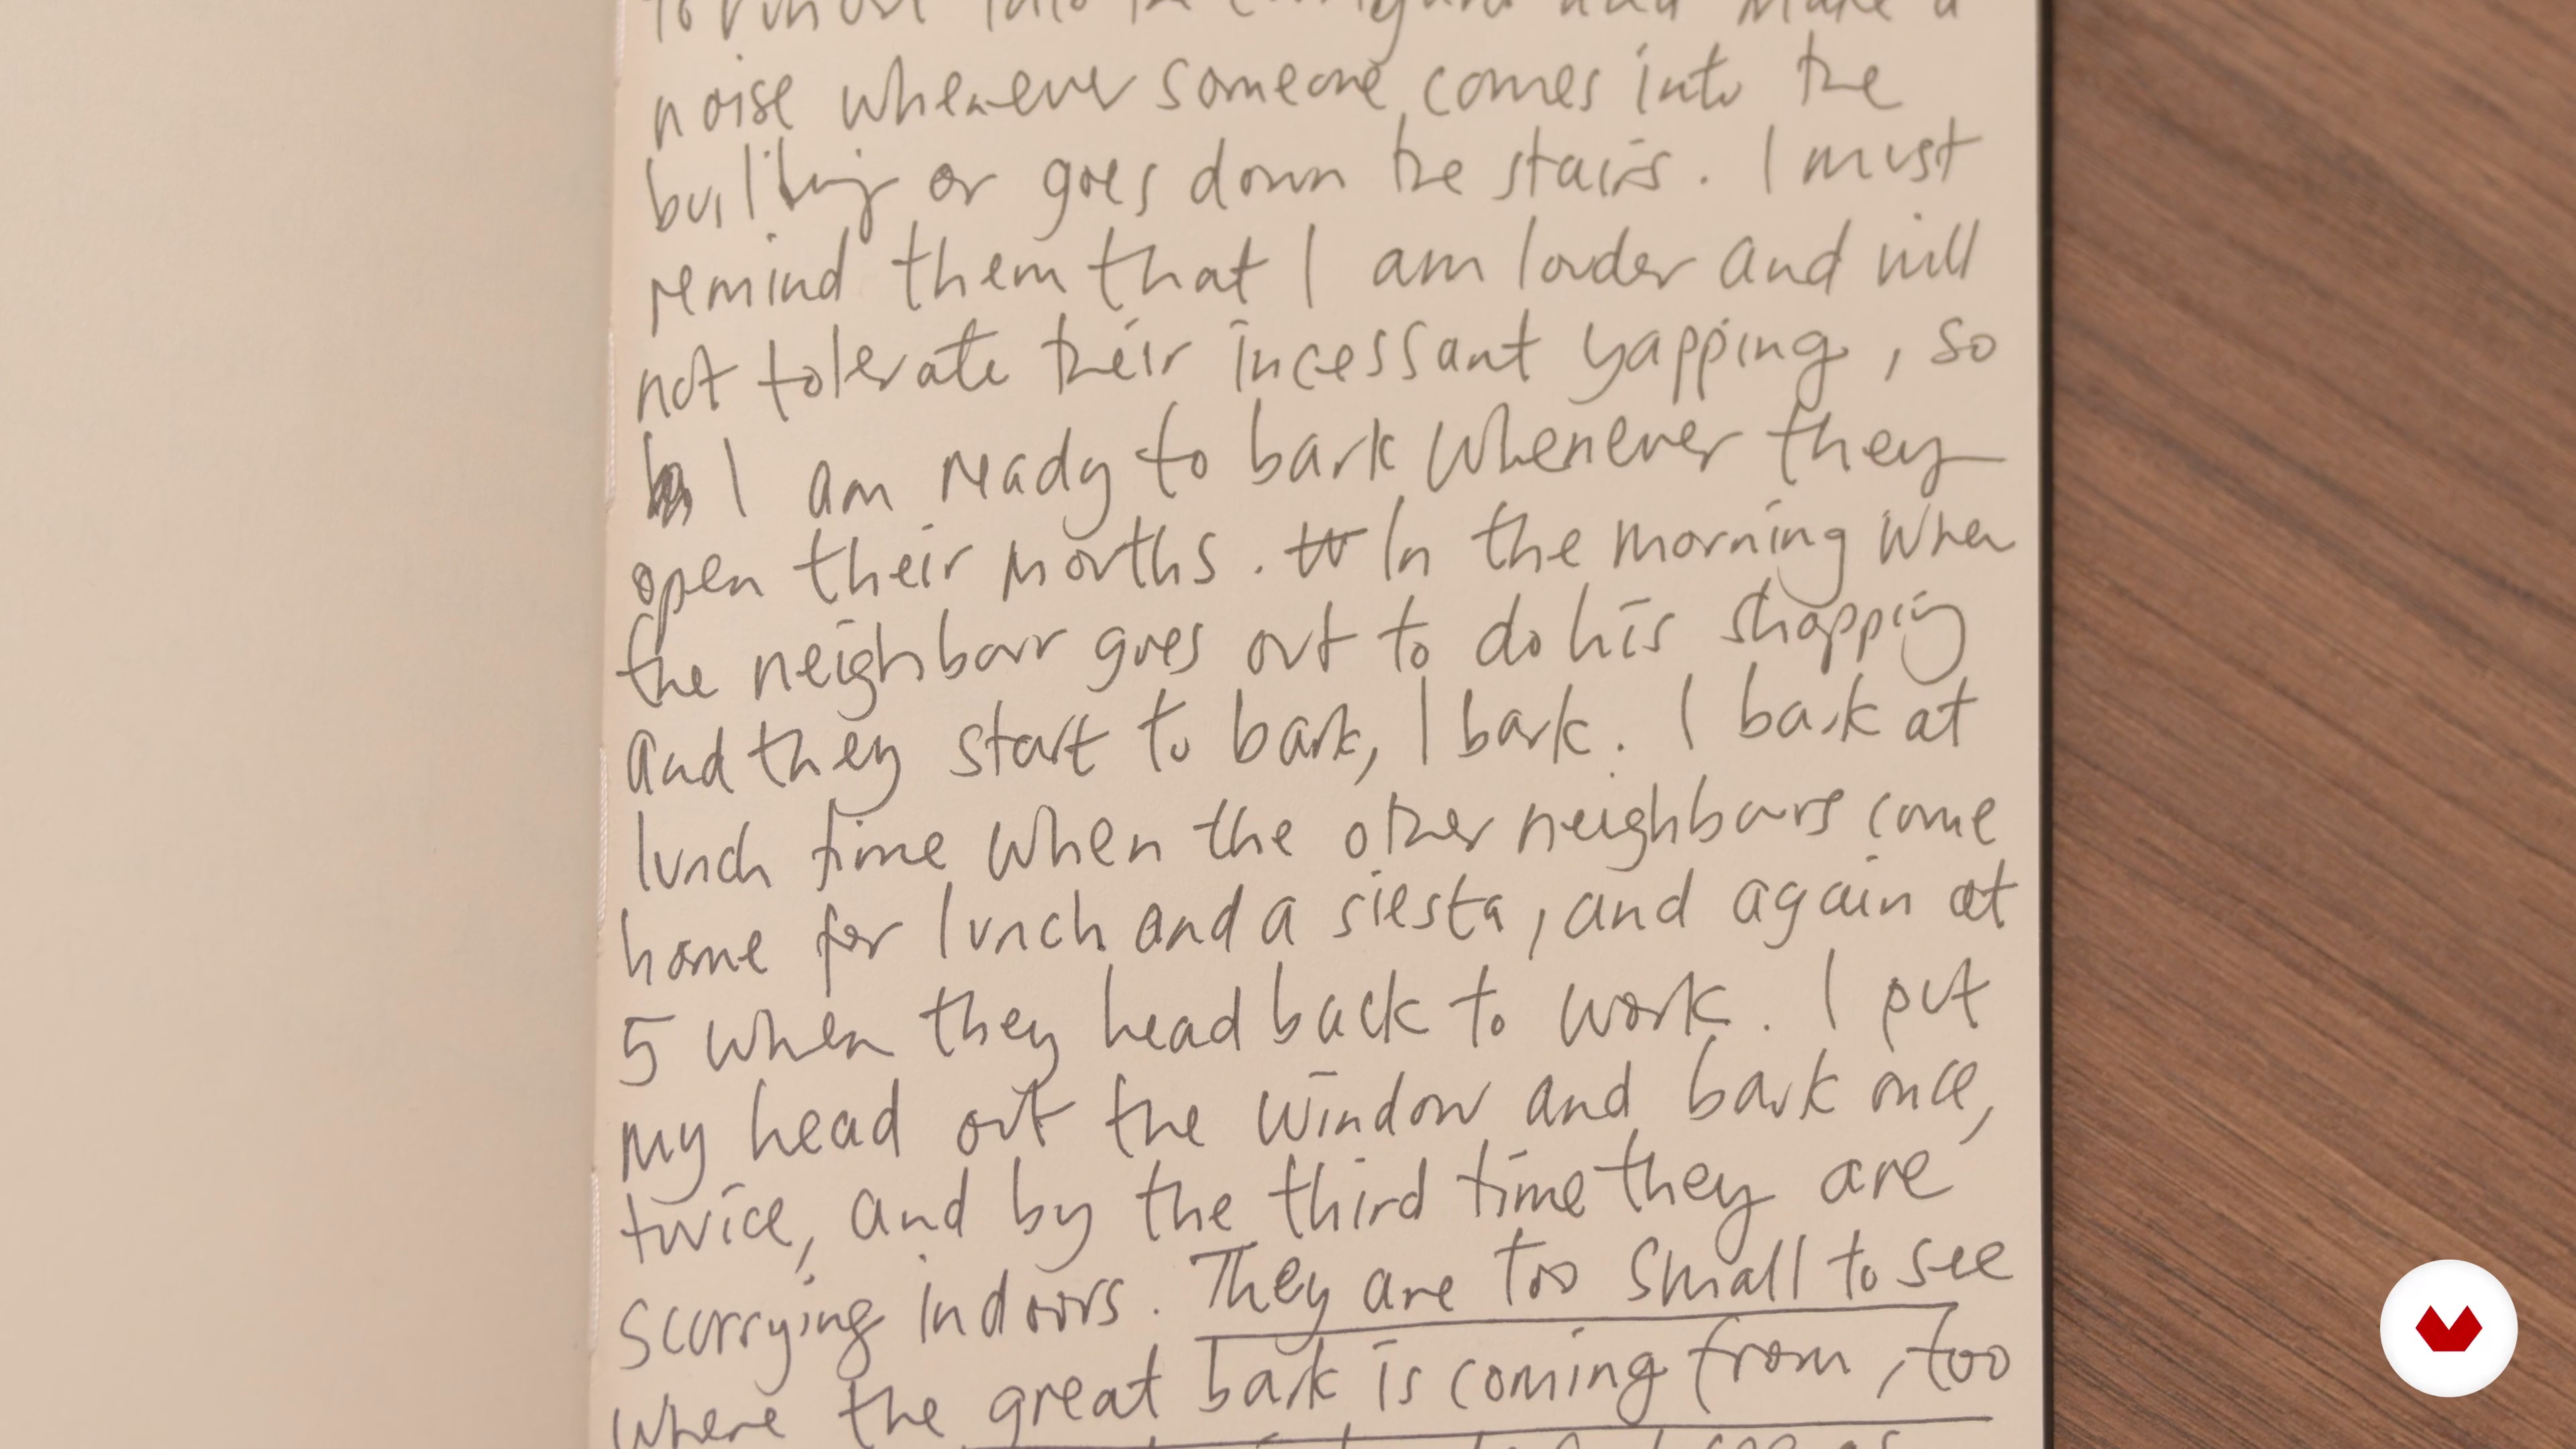 into the courtyard and make a
noise whenever someone comes into the
building or goes down the stairs. I must
remind them that I am louder and will
not tolerate their incessant yapping, so
I am ready to bark whenever they
open their mouths. In the morning when
the neighbour goes out to do his shopping
and they start to bark, I bark. I bark at
lunch time when the other neighbours come
home for lunch and a siesta, and again at
5 when they head back to work. I put
my head out the window and bark once,
twice, and by the third time they are
scurrying indoors. They are too small to see
where the great bark is coming from, too